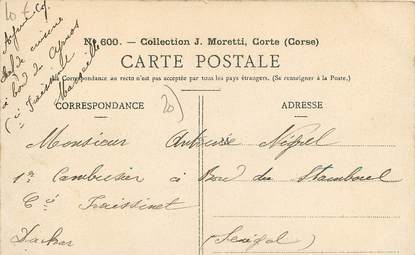 10 €
chef de cuisine
à bord du Cyrnos
Cie Fraissinet
Marseille
No 600. - Collection J. Moretti, Corte (Corse)
CARTE POSTALE
La Correspondance au recto n'est pas acceptée par tous les pays étrangers. (Se renseigner à la Poste.)
CORRESPONDANCE
20
ADRESSE
Monsieur Antoine
1er Cambusier à Bord du Stamboul
Cie Fraissinet
Dakar (Sénégal)